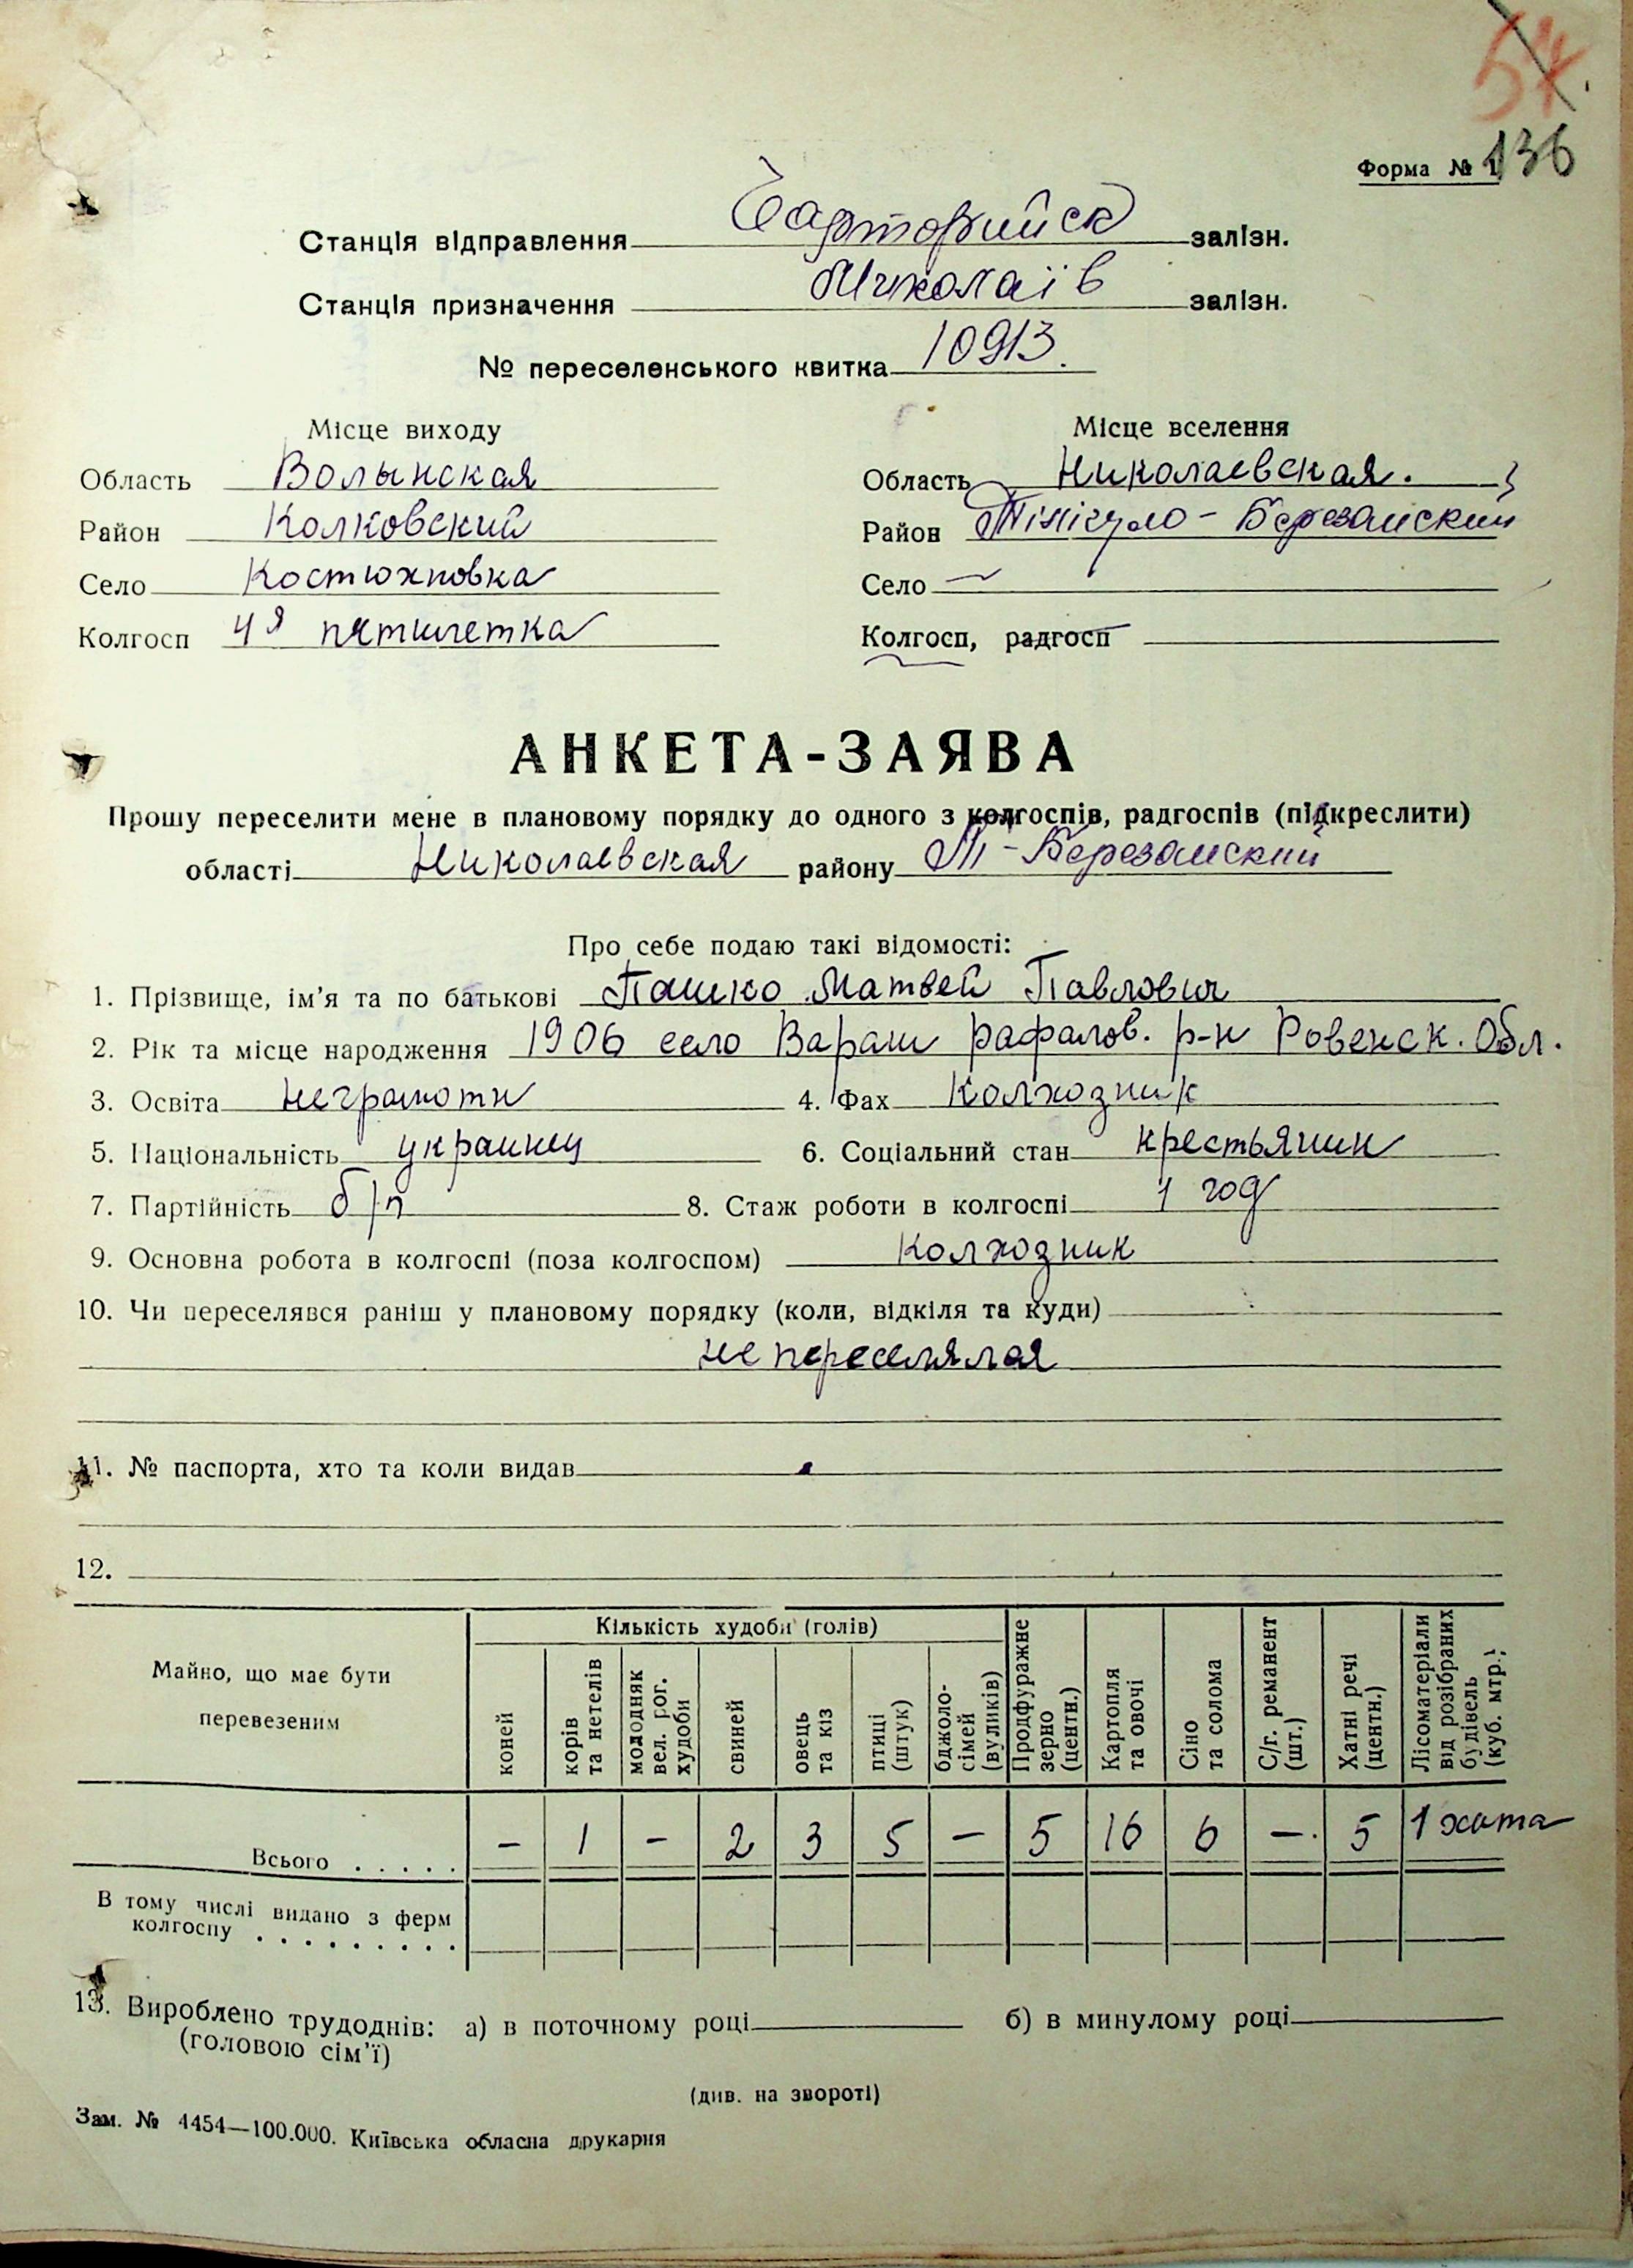 57
136
Форма № 1
Станція відправлення Чарторийск залізн.
Станція призначення Миколаїв залізн.
№ переселенського квитка 10913.
Місце виходу Місце вселення
Область Волынская Область Николаевская.
Район Колковский Район Тілігуло-Березанский
Село Костюхновка Село —
Колгосп 4я пятилетка Колгосп, радгосп
АНКЕТА-ЗАЯВА
Прошу переселити мене в плановому порядку до одного з колгоспів, радгоспів (підкреслити)
області Николаевская району Т-Березанский
Про себе подаю такі відомості:
1. Прізвище, ім’я та по батькові Пашко Матвей Павлович
2. Рік та місце народження 1906 село Вараш рафалов. р-н Ровенск. Обл.
3. Освіта неграмотн 4. Фах Колхозник
5. Національність украинец 6. Соціальний стан крестьянин
7. Партійність б/п 8. Стаж роботи в колгоспі 1 год
9. Основна робота в колгоспі (поза колгоспом) Колхозник
10. Чи переселявся раніш у плановому порядку (коли, відкіля та куди)
не переселялся
11. № паспорта, хто та коли видав
12.
Майно, що має бути перевезеним
Кількість худоби (голів)
коней
корів та нетелів
молодняк вел. рог. худоби
свиней
овець та кіз
птиці (штук)
бджоло-сімей (вуликів)
Продфуражне зерно (центн.)
Картопля та овочі
Сіно та солома
С/г. реманент (шт.)
Хатні речі (центн.)
Лісоматеріали від розібраних будівель (куб. мтр.)
Всього . . . . . – 1 – 2 3 5 – 5 16 6 – 5 1 хата
В тому числі видано з ферм
колгоспу . . . . . . . . .
13. Вироблено трудоднів: а) в поточному році б) в минулому році
(головою сім’ї)
(див. на звороті)
Зам. № 4454—100.000. Київська обласна друкарня